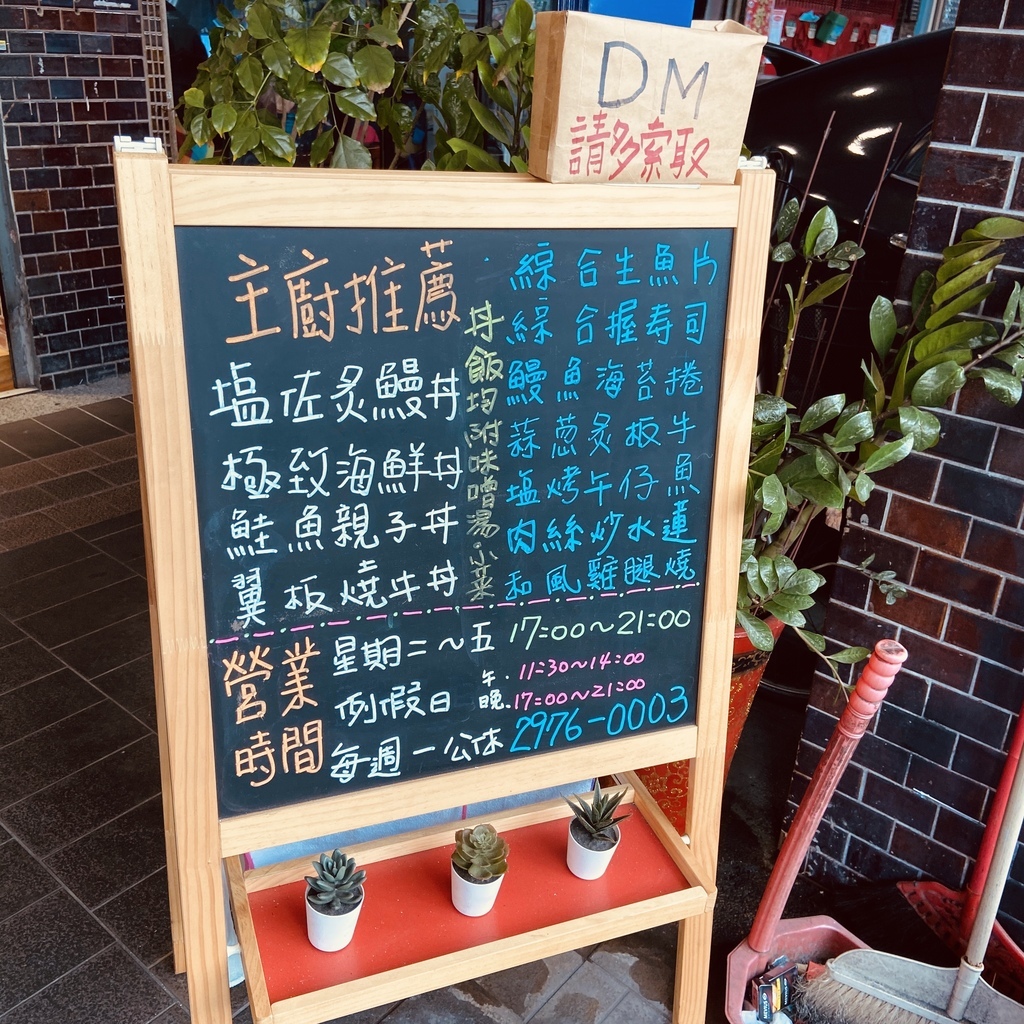 DM
請多索取
主廚推薦
塩佐炙鰻丼
極致海鮮丼
鮭魚親子丼
翼板燒牛丼
丼飯均附味噌湯·小菜
綜合生魚片
綜合握寿司
鰻魚海苔捲
蒜蔥炙板牛
塩烤午仔魚
肉絲炒水蓮
和風雞腿燒
營業時間
星期二～五 17:00～21:00
例假日 午.11:30～14:00
晚.17:00～21:00
每週一公休 2976-0003